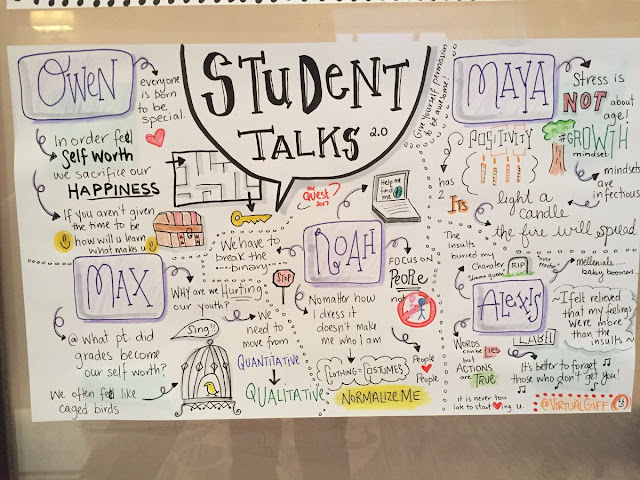 STUDENT
TALKS 2.0
the
Quest
2017
OWEN
everyone
is born
to be
special.
In order feel
Self Worth
we sacrifice our
HAPPINESS
If you aren't given
the time to be
how will u learn
what makes u
MAX
WHY are we Hurting
our youth?
@ what pt. did
grades become
our self worth?
We often feel like
caged birds
Sing!!
We
need to
move from
QUANTITATIVE
QUALITATIVE
NOAH
We have to
break the
binary
STOP
Help me
find
me
FOCUS ON
PEOPLE
not
No matter how
I dress it
doesn't make
me who I am
CLOTHING = COSTUMES
NORMALIZE ME
People
People
Give yourself permission
to be awesome!
MAYA
Stress is
NOT about
age!
POSITIVITY
#GROWTH
mindset
mindsets
are
infectious
has
2
Its
light a
candle
the fire will spread
ALEXIS
The
insults
burned my
Chandler
RIP
mellenials....
baby boomers
~I felt relieved
that my feelings
were more
than the
insults~
LABEL
Words
can be lies
but
ACTIONS
are TRUE
It's better to forget
those who don't get you!
it is never too
late to start ing u.
@VIRTUALGIFF